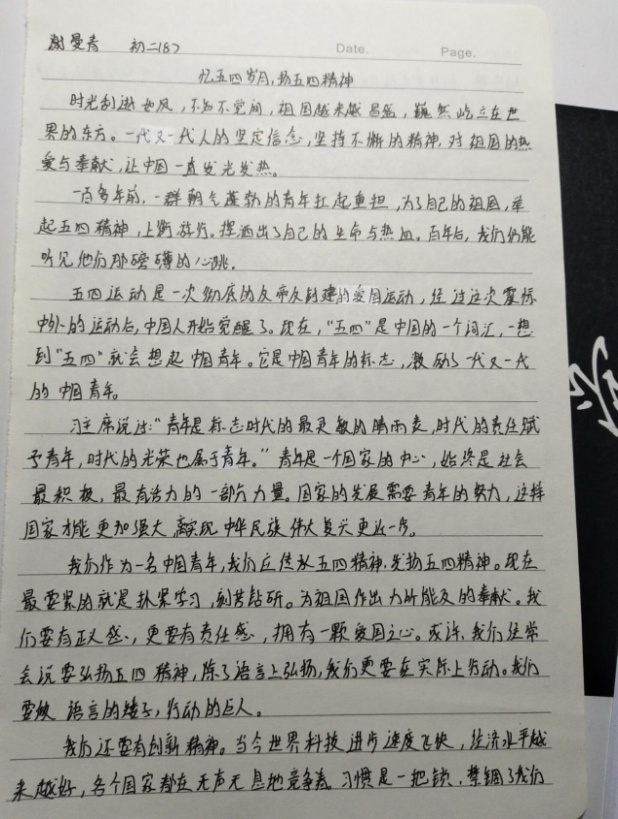 谢曼青 初二(8)
Date. Page.
忆五四岁月,扬五四精神
时光刮逝如风,不知不觉间,祖国越来越昌盛,巍然屹立在世
界的东方。一代又一代人的坚定信念,坚持不懈的精神,对祖国的热
爱与奉献,让中国一直发光发热。
一百多年前,一群朝气蓬勃的青年扛起重担,为了自己的祖国,举
起五四精神,上街游行。挥洒出了自己的生命与热血。百年后,我们仍能
听见他们那磅礴的心跳。
五四运动是一次彻底的反帝反封建的爱国运动,经过这次震惊
中外的运动后,中国人开始觉醒了。现在,"五四"是中国的一个词汇,一想
到"五四"就会想起中国青年。它是中国青年的标志,激励了一代又一代
的中国青年。
习主席说过:"青年是标志时代的最灵敏的晴雨表,时代的责任赋
予青年,时代的光荣也属于青年。"青年是一个国家的中心,始终是社会
最积极,最有活力的一部分力量。国家的发展需要青年的努力,这样
国家才能更加强大,离实现中华民族伟大复兴更近一步。
我们作为一名中国青年,我们应传承五四精神,发扬五四精神。现在
最要紧的就是抓紧学习,刻苦钻研。为祖国作出力所能及的奉献。我
们要有正义感,更要有责任感,拥有一颗爱国之心。或许,我们经常
会说要弘扬五四精神,除了语言上弘扬,我们更要在实际上行动。我们
要做语言的矮子,行动的巨人。
我们还要有创新精神。当今世界科技进步速度飞快,经济水平越
来越好,各个国家都在无声无息地竞争着。习惯是一把锁,禁锢了我们